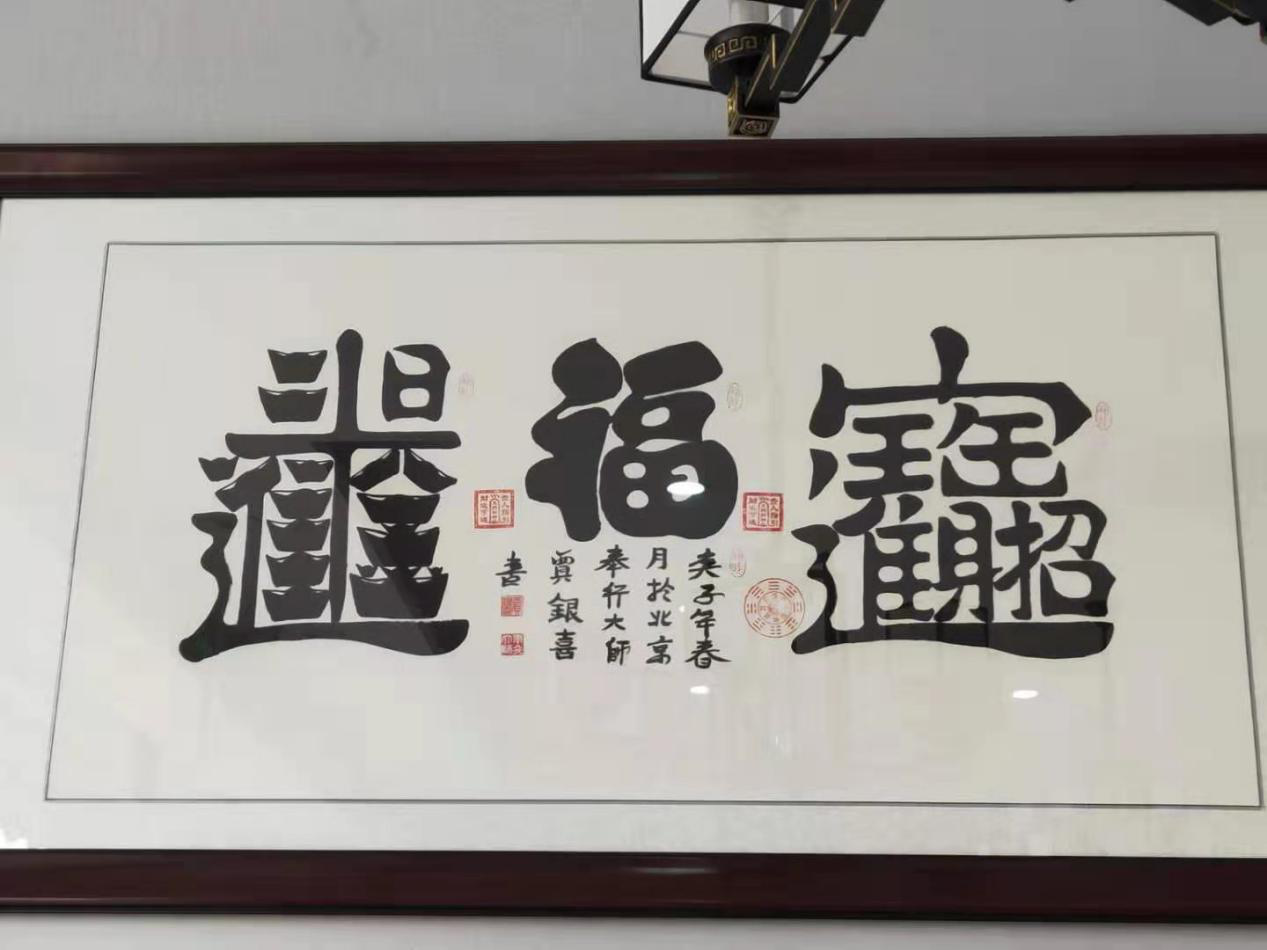 招財進寶
福
日進斗金
庚子年春
月於北京
奉仟大師
賈銀喜
書